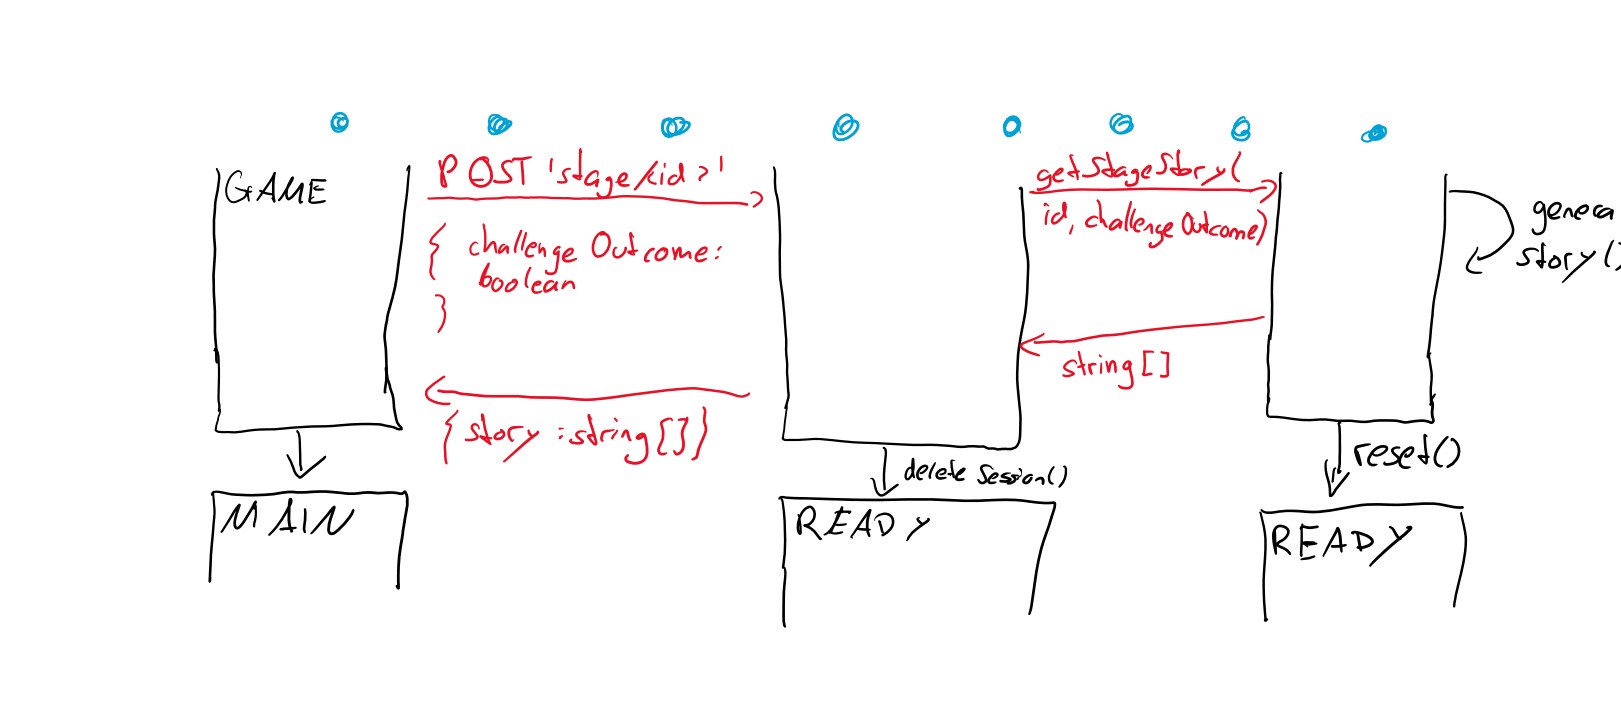 GAME
POST 'stage/<id>'
{ challengeOutcome:
boolean
}
{story:string[]}
getStageStory(
id, challengeOutcome)
string[]
story()
deleteSession()
reset()
MAIN
READY
READY